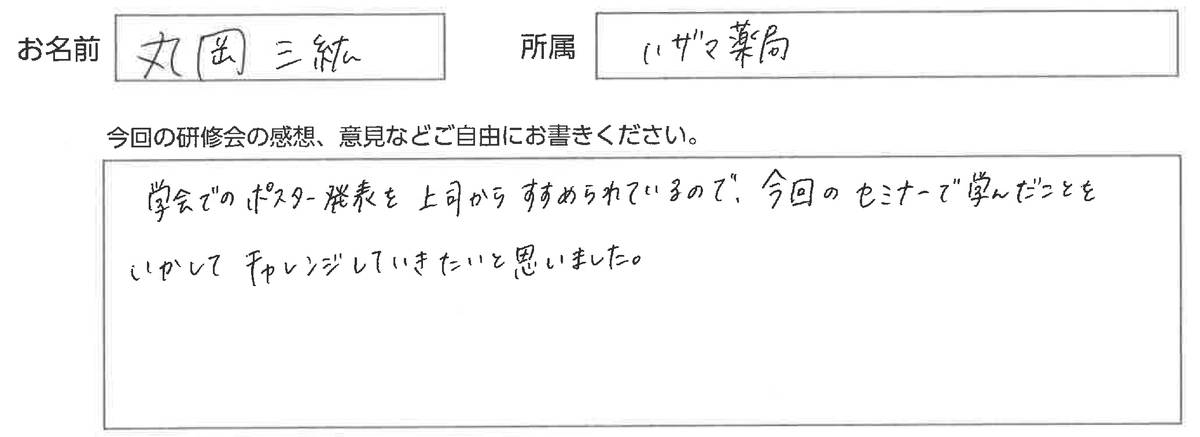 お名前 丸岡 三紘 所属 ハザマ薬局
今回の研修会の感想、意見などご自由にお書きください。
学会でのポスター発表を上司からすすめられているので、今回のセミナーで学んだことを
いかしてチャレンジしていきたいと思いました。